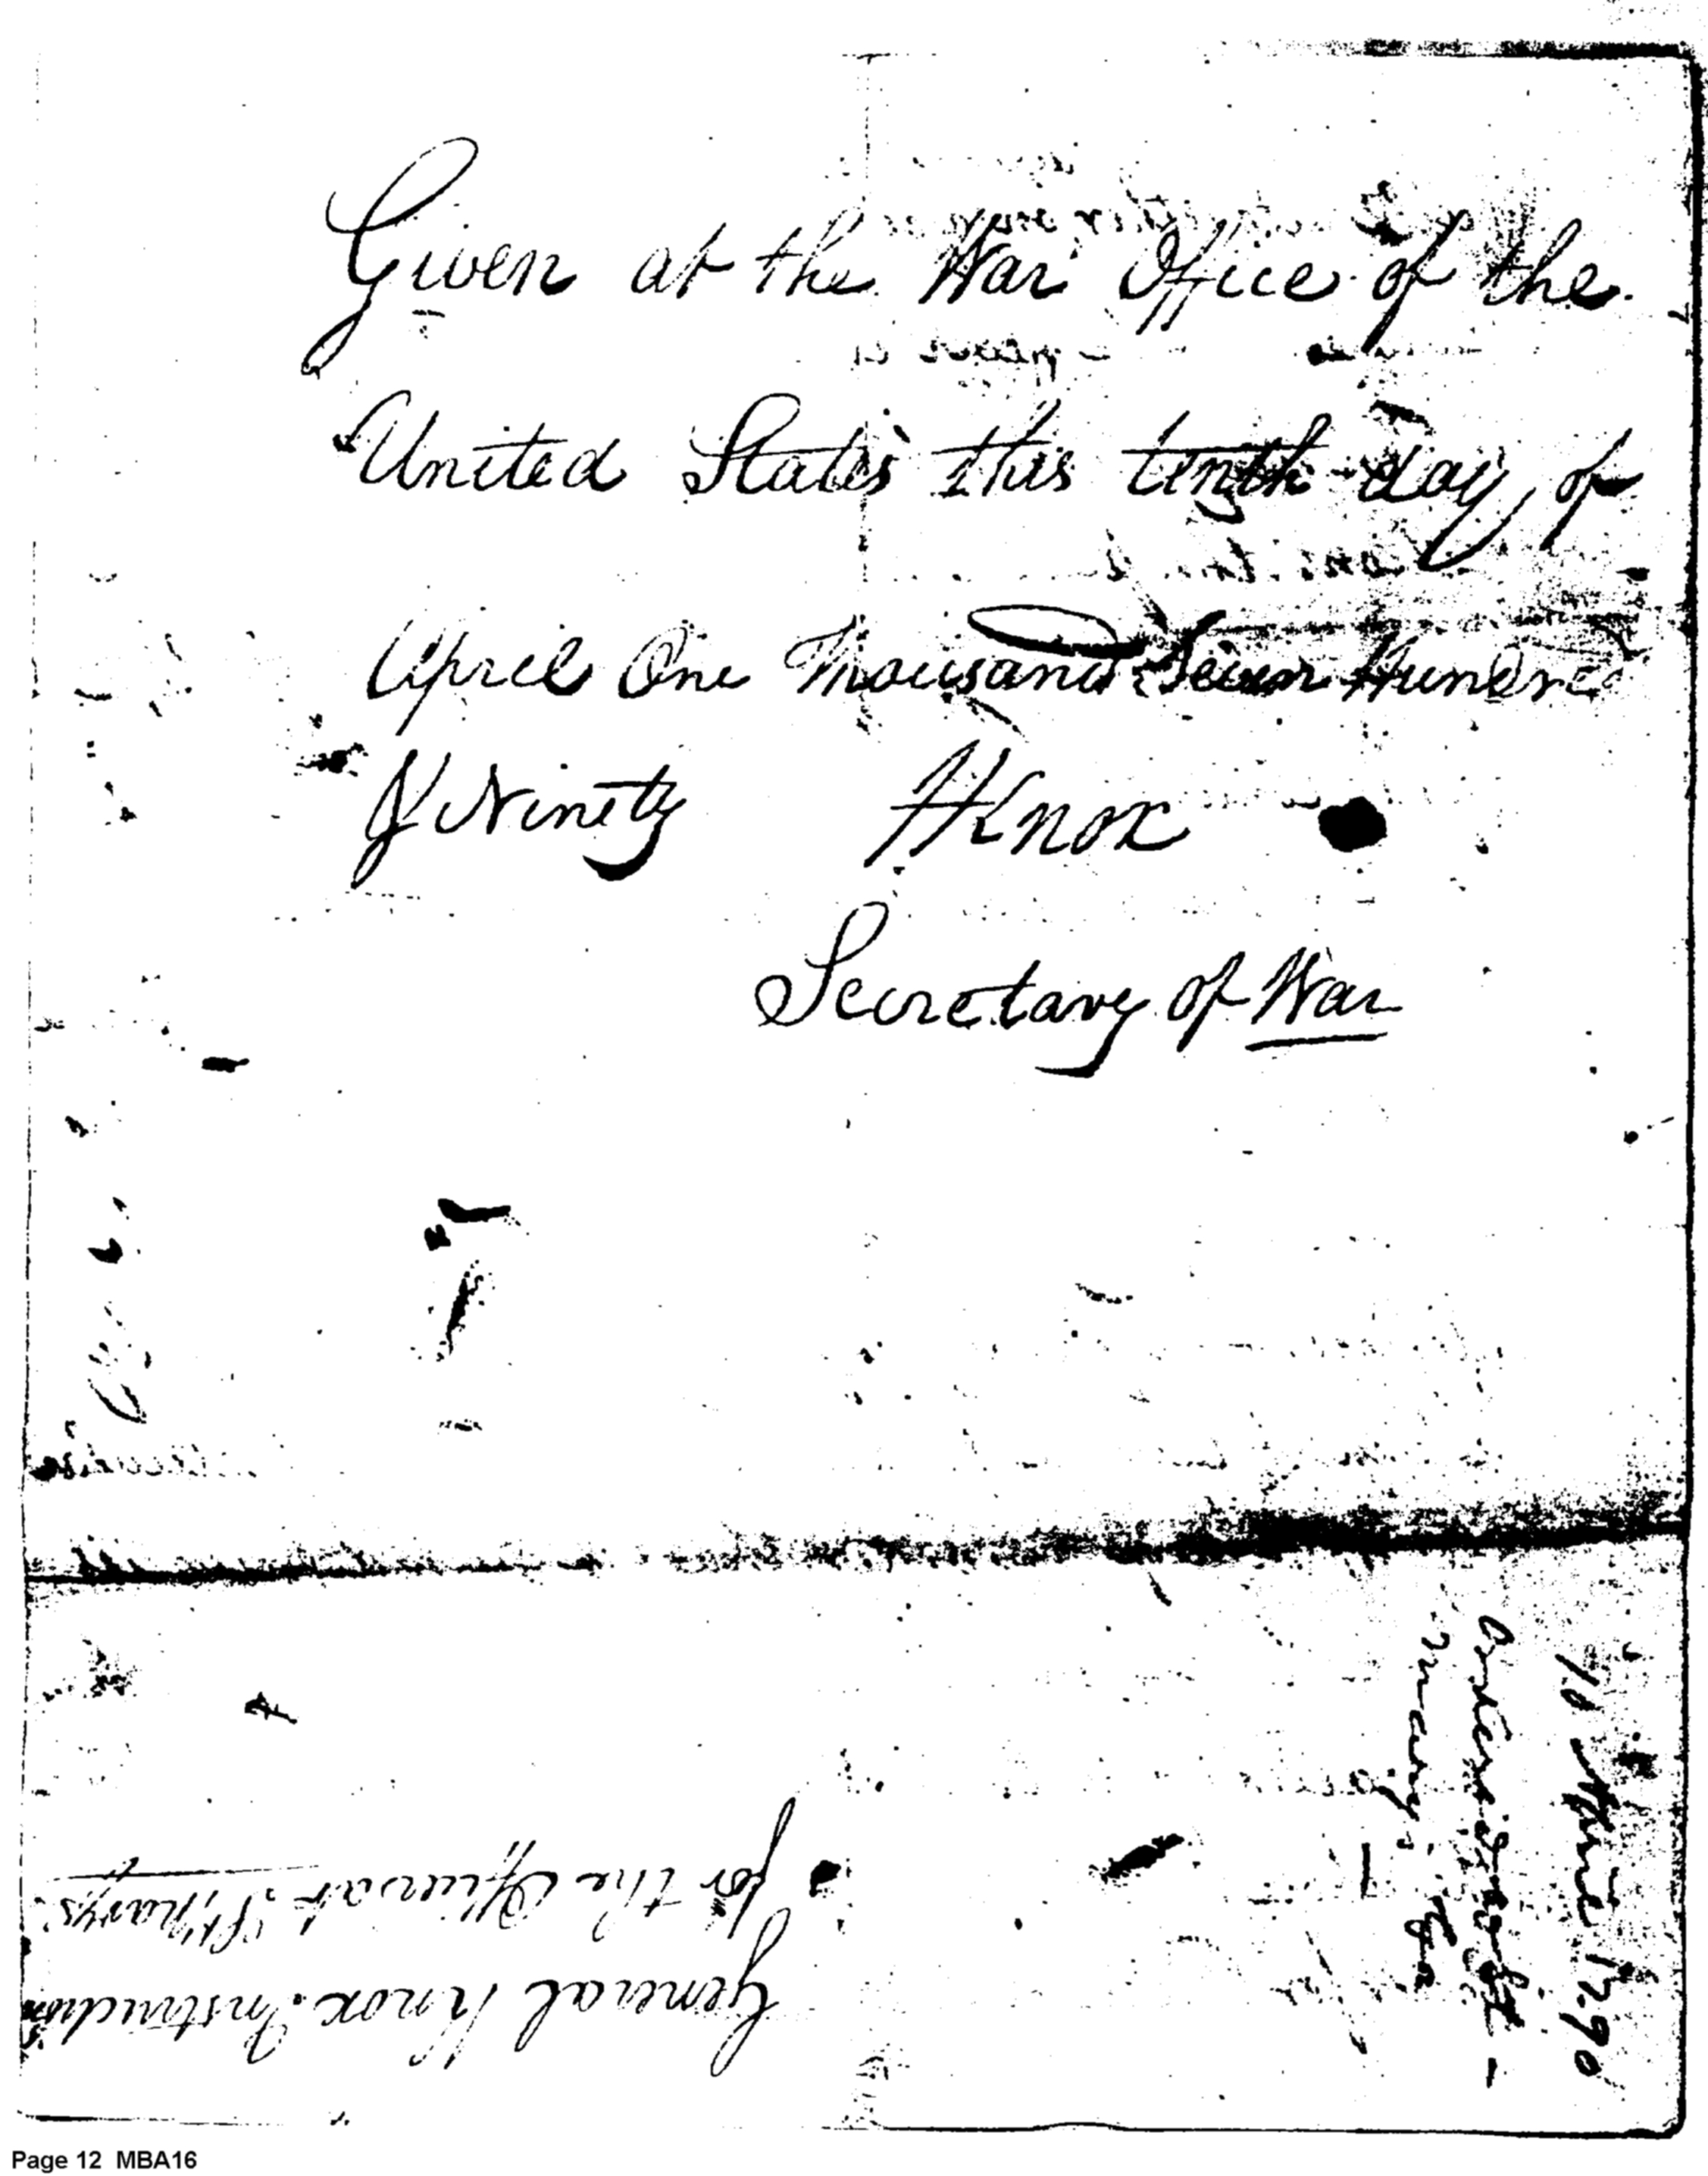 Given at the War Office of the
United States this tenth day of
April One Thousand Seven Hundred
& Ninety HKnox
Secretary of War
General Knox Instructions
for the Officer at St. Marys
10 April 1790
Orders
Mary
Page 12 MBA16